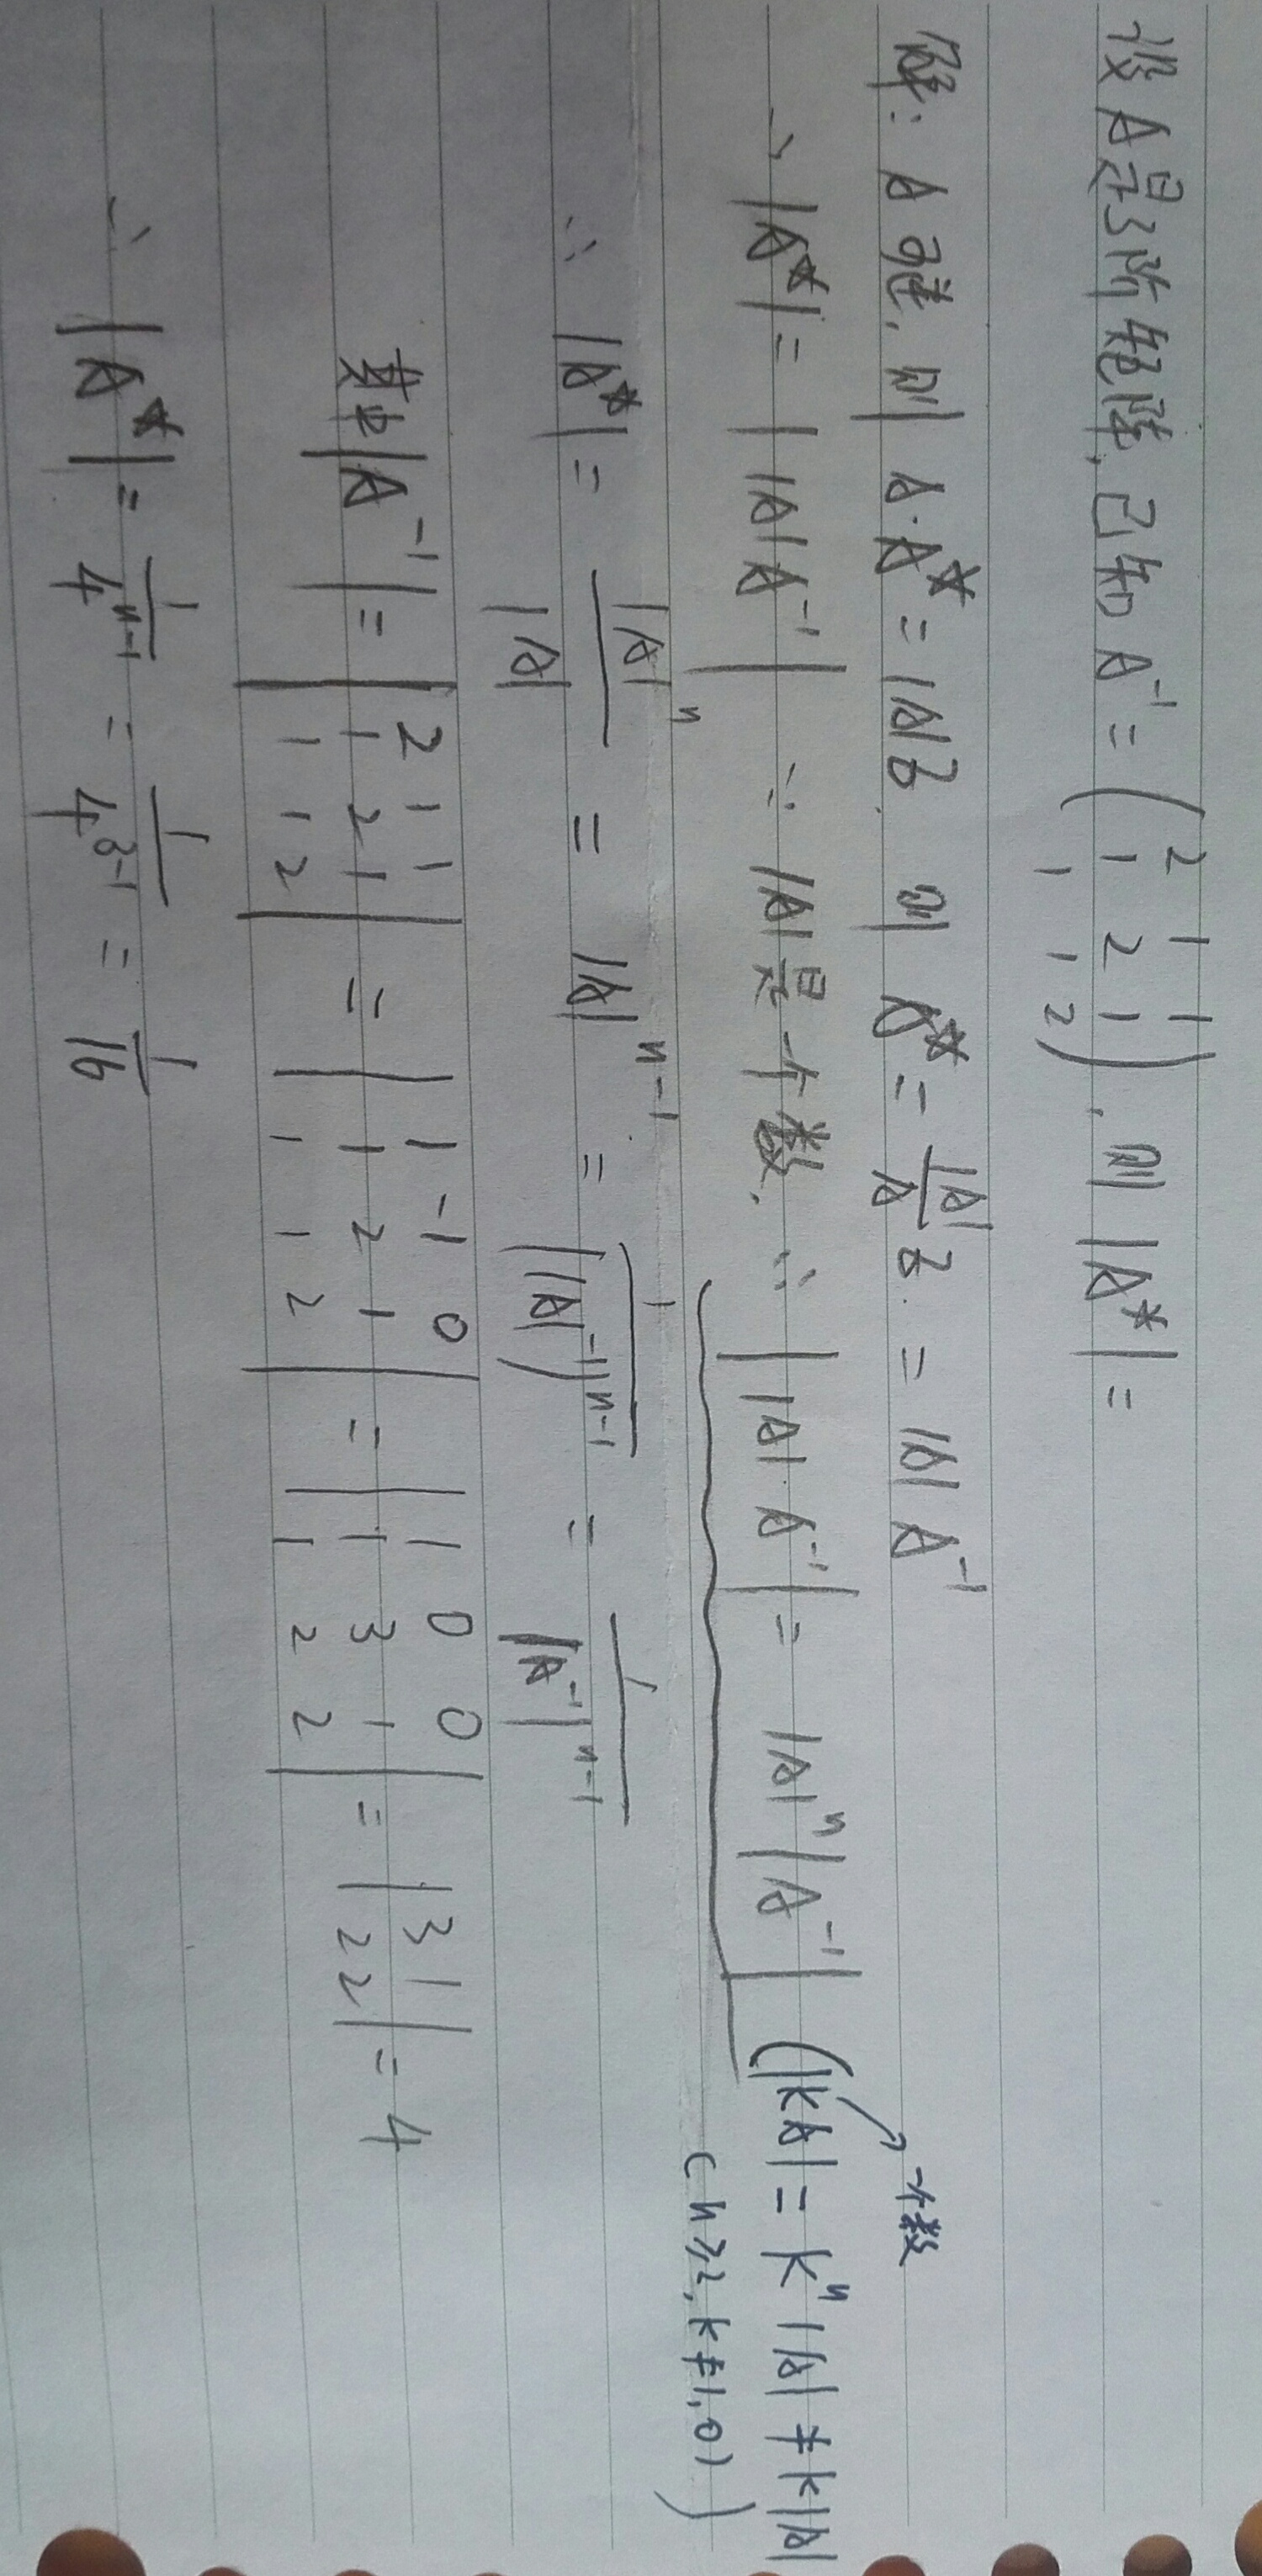 设A是3阶矩阵,已知A⁻¹=(2 1 1
1 2 1
1 1 2),则|A*|=
解:A可逆,则A·A*=|A|E. 则A*=|A|/A E.=|A|A⁻¹
∴|A*|=||A|A⁻¹| ∵|A|是一个数,∴||A|·A⁻¹|=|A|ⁿ|A⁻¹| (|KA|=Kⁿ|A|≠K|A|
→一个数
(n≥2,k≠1,0))
∴|A*|=|A|ⁿ/|A|=|A|ⁿ⁻¹=1/(|A|⁻¹)ⁿ⁻¹=1/|A⁻¹|ⁿ⁻¹
其中|A⁻¹|=|2 1 1
1 2 1
1 1 2|=|1 -1 0
1 2 1
1 1 2|=|1 0 0
1 3 1
1 2 2|=|3 1
2 2|=4
∴|A*|=1/4ⁿ⁻¹=1/4³⁻¹=1/16